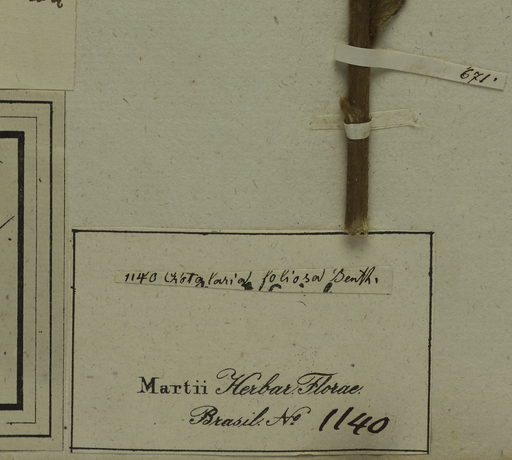 671.
1140 Crotalaria foliosa Benth.
Martii Herbar. Florae.
Brasil. No 1140